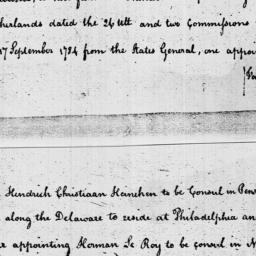 therlands dated the 24 ult and two Commissions
27 September 1784 from the States General, one appoin
Hendrich Christiaan Heineken to be Consul in Penn
along the Delaware to reside at Philadelphia an
appointing Herman Le Roy to be consul in N